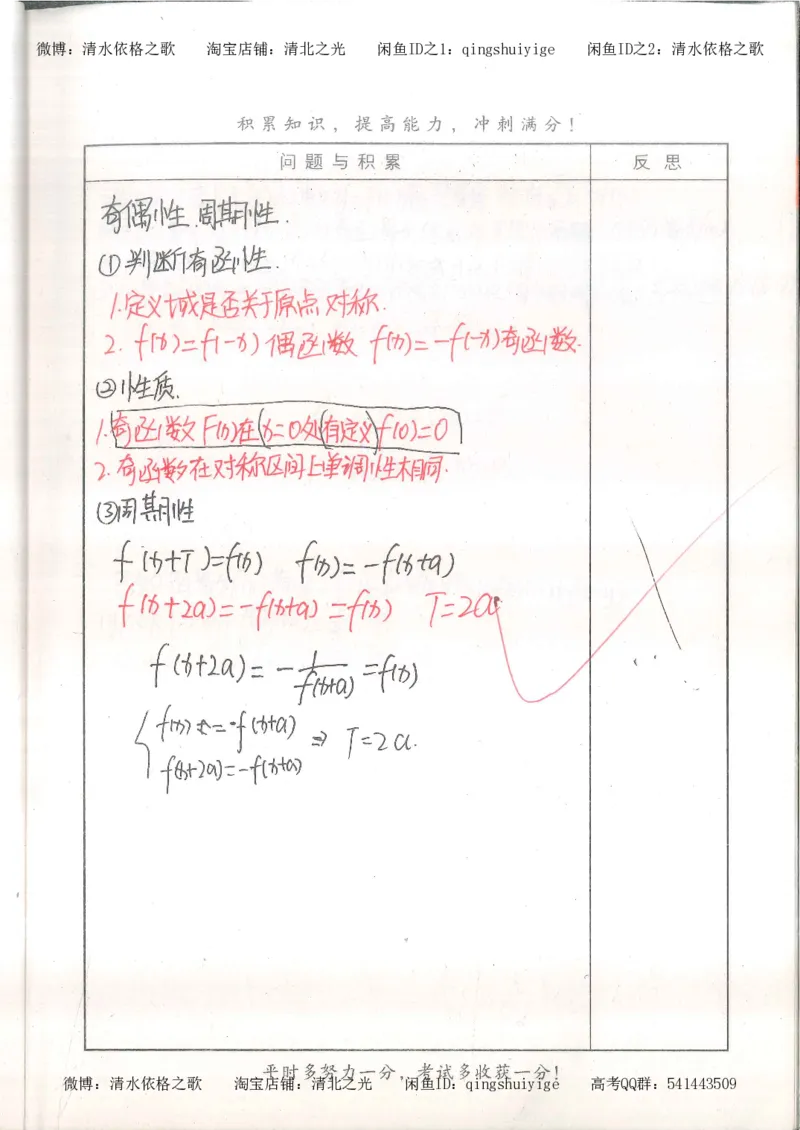 微博：清水依格之歌 淘宝店铺：清北之光 闲鱼ID之1：qingshuiyige 闲鱼ID之2：清水依格之歌
积累知识，提高能力，冲刺满分！
问题与积累 反思
奇偶性 周期性.
① 判断奇函性.
1.定义域是否关于原点对称.
2. f(x)=f(-x) 偶函数 f(x)=-f(-x)奇函数.
②性质.
1.奇函数F(x)在(x=0处(有定义)f(0)=0
2.奇函数在对称区间上单调性相同.
③周期性
f(x+T)=f(x) f(x)=-f(x+a)
f(x+2a)=-f(x+a)=f(x) T=2a
f(x+2a)=-1/f(x+a)=f(x)
f(x)=-f(x+a)
⇒ T=2a.
f(x+2a)=-f(x+a)
平时多努力一分，考试多收获一分！
微博：清水依格之歌 淘宝店铺：清北之光 闲鱼ID：qingshuiyige 高考QQ群：541443509